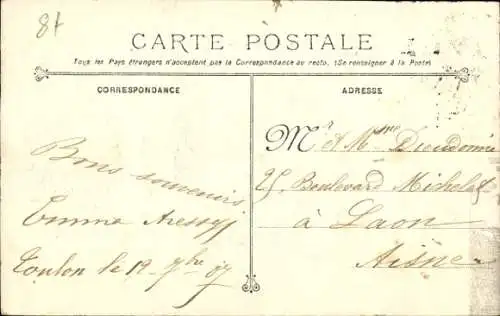 87
CARTE POSTALE
Tous les Pays étrangers n'acceptent pas la Correspondance au recto. (Se renseigner à la Poste)
CORRESPONDANCE
Bons souvenirs
Emma
Toulon le 19 7bre 07
ADRESSE
Mr et Mme Dieudonné
25 Boulevard Michelet
à Laon
Aisne